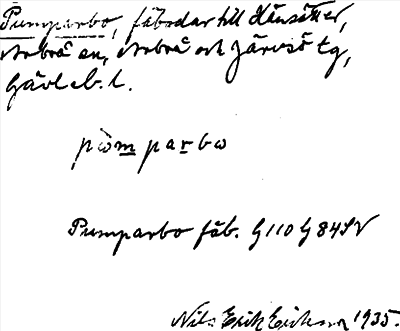 Pumparbo, fäbodar till Hänsätter,
Arbrå sn, Arbrå och Järvsö tg,
Gävleb. l.
pömparbo
Pumparbo fäb. G110 G84SV
Nils Erik Eriksson 1935.